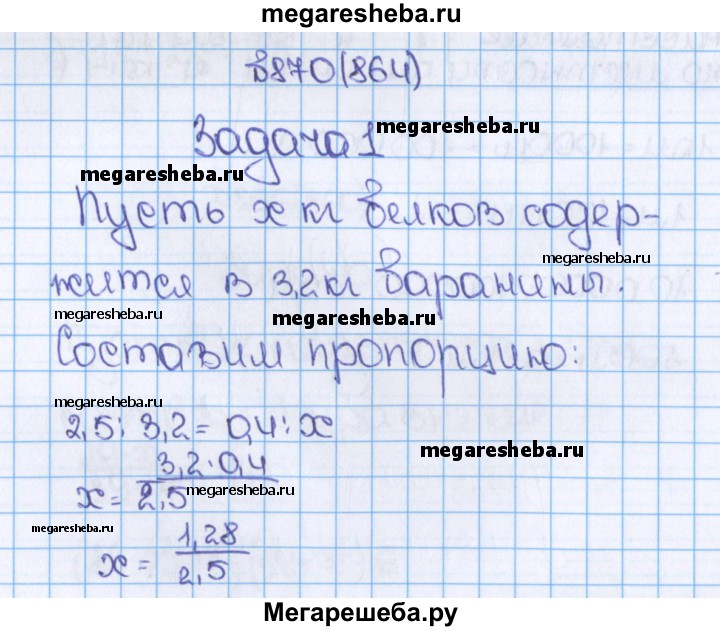 megaresheba.ru
№870(864)
Задача 1
megaresheba.ru
megaresheba.ru
Пусть x кг белков содер-
megaresheba.ru
жится в 3,2 кг баранины.
megaresheba.ru
megaresheba.ru
Составим пропорцию:
megaresheba.ru
2,5 : 3,2 = 0,4 : x
megaresheba.ru
x = 3,2 · 0,4 / 2,5
megaresheba.ru
megaresheba.ru
x = 1,28 / 2,5
Мегарешеба.ру